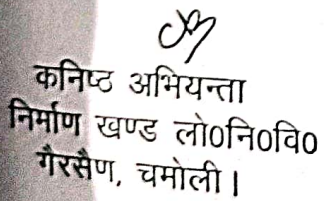 कनिष्ठ अभियन्ता
निर्माण खण्ड लो०नि०वि०
गैरसैण, चमोली।